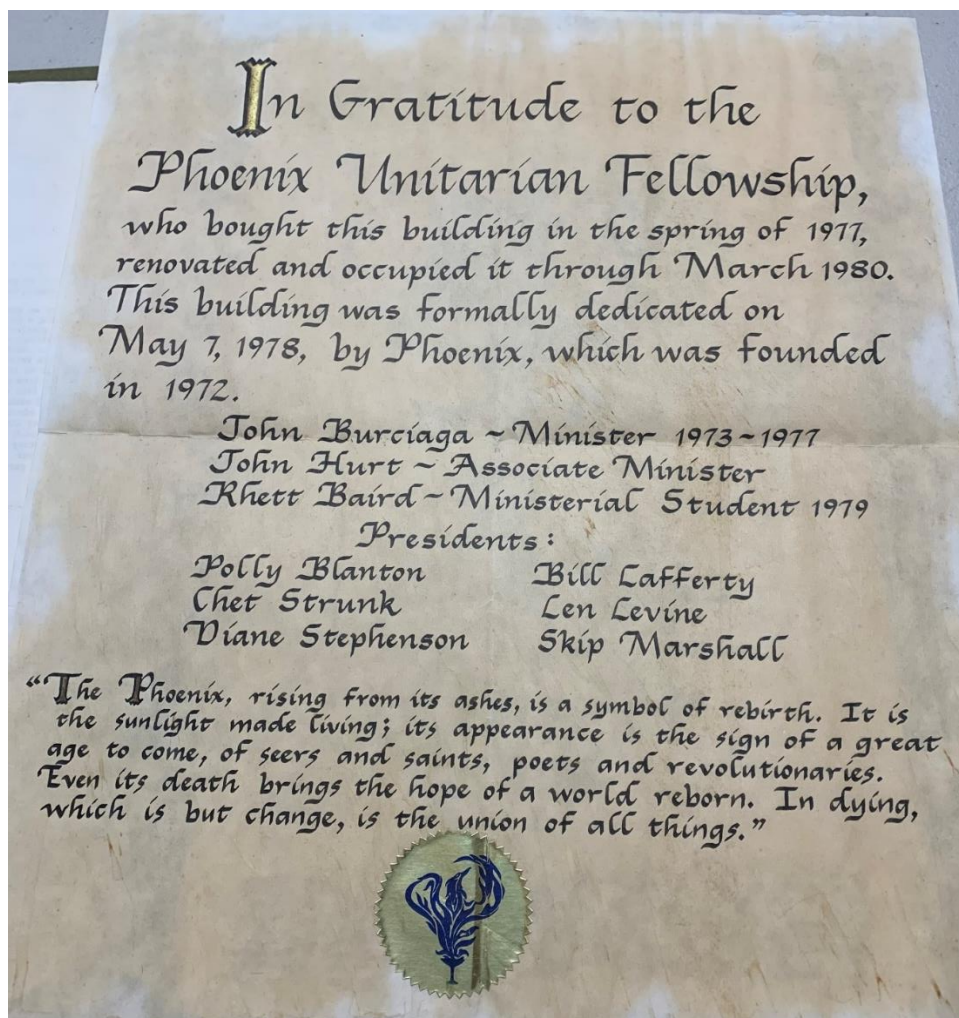 In Gratitude to the
Phoenix Unitarian Fellowship,
who bought this building in the spring of 1977,
renovated and occupied it through March 1980.
This building was formally dedicated on
May 7, 1978, by Phoenix, which was founded
in 1972.
John Burciaga ~ Minister 1973~1977
John Hurt ~ Associate Minister
Rhett Baird ~ Ministerial Student 1979
Presidents:
Polly Blanton Bill Lafferty
Chet Strunk Len Levine
Diane Stephenson Skip Marshall
“The Phoenix, rising from its ashes, is a symbol of rebirth. It is
the sunlight made living; its appearance is the sign of a great
age to come, of seers and saints, poets and revolutionaries.
Even its death brings the hope of a world reborn. In dying,
which is but change, is the union of all things.”